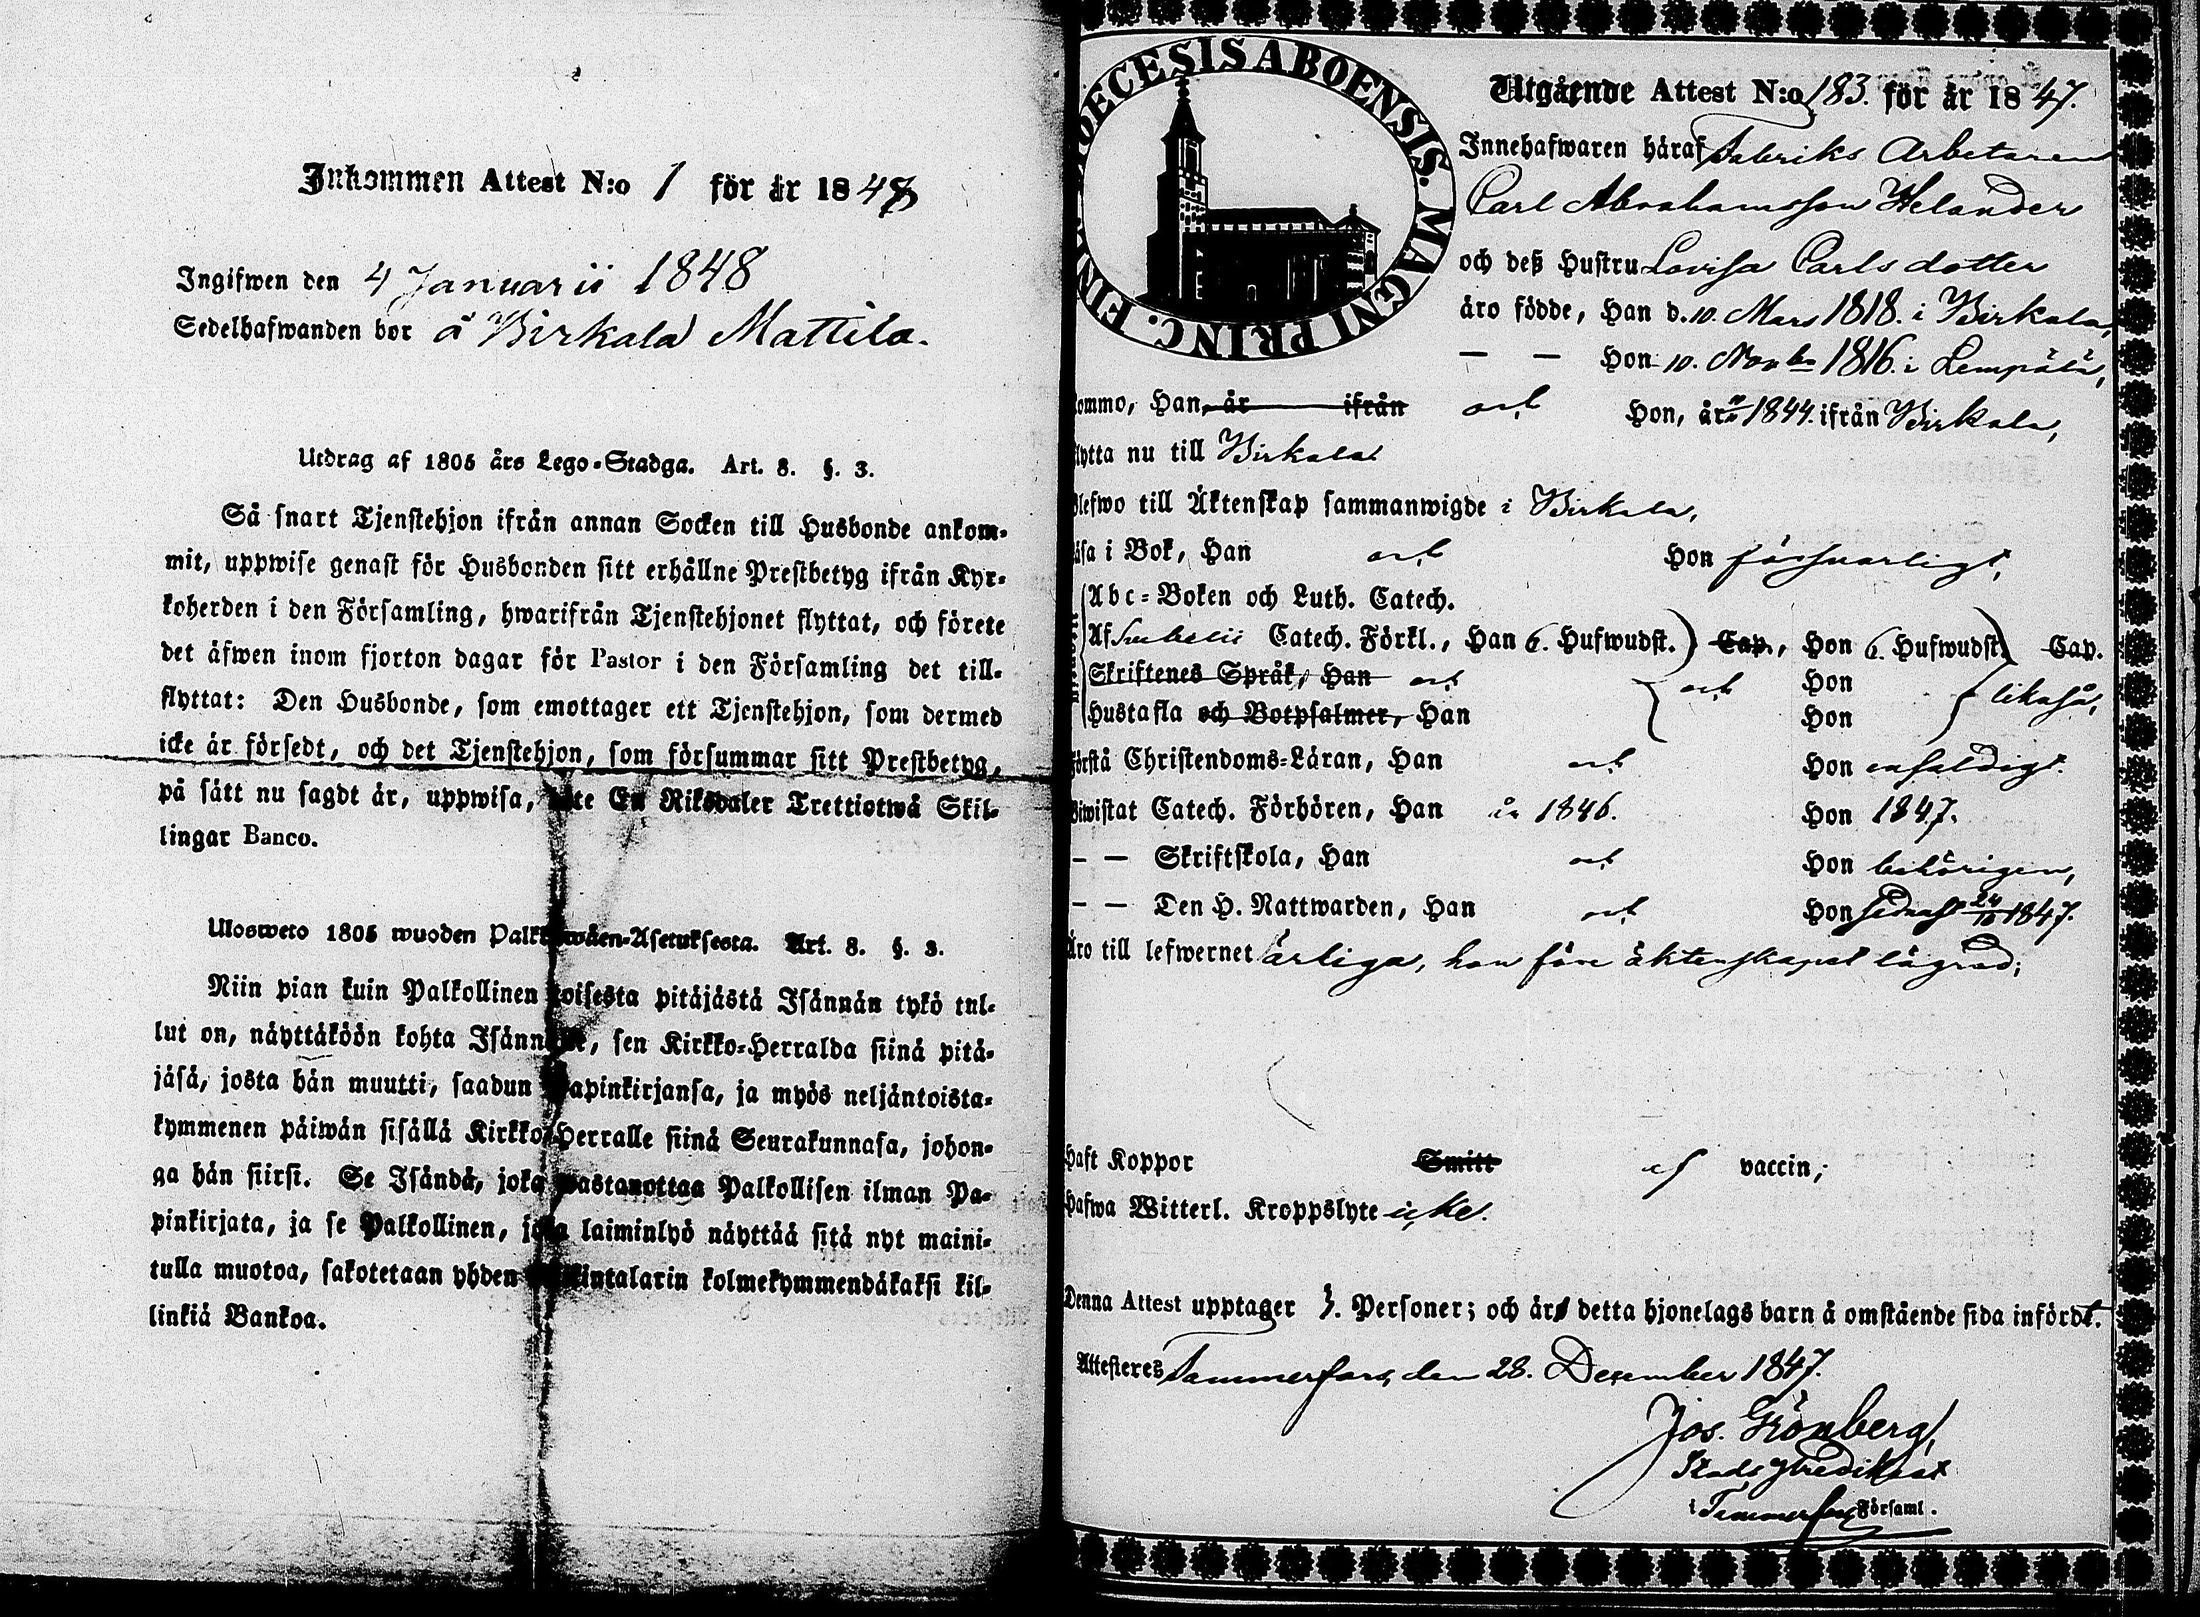 Inkommen Attest N:o 1 för år 1848
Ingifwen den 4 Januarii 1848
Sedelhafwanden bor å Birkala Mattila.
Utdrag af 1805 års Lego-Stadga. Art. 8. §. 3.
Så snart Tjenstehjon ifrån annan Socken till Husbonde ankom-
mit, uppwise genast för Husbonden sitt erhållne Prestbetyg ifrån Kyr-
koherden i den Församling, hwarifrån Tjenstehjonet flyttat, och förete
det äfwen inom fjorton dagar för Pastor i den Församling det till-
flyttat: Den Husbonde, som emottager ett Tjenstehjon, som dermed
icke är försedt, och det Tjenstehjon, som försummar sitt Prestbetyg,
på sätt nu sagdt är, uppwisa, böte En Riksdaler Trettiotwå Skil-
lingar Banco.
Ulosweto 1805 wuoden Palkkawäen-Asetuksesta. Art. 8. §. 3.
Niin pian kuin Palkollinen toisesta pitäjästä Isännän tykö tul-
lut on, näyttäköön kohta Isännälle, sen Kirkko-Herralda siinä pitä-
jäsä, josta hän muutti, saadun Papinkirjansa, ja myös neljäntoista-
kymmenen päiwän sisällä Kirkko-Herralle siinä Seurakunnasa, johon-
ga hän siirsi. Se Isändä, joka wastanottaa Palkollisen ilman Pa-
pinkirjata, ja se Palkollinen, joka laiminlyö näyttää sitä nyt maini-
tulla muotoa, sakotetaan yhden Riikintalarin kolmekymmendäkaksi kil-
linkiä Bankoa.
DIOECESIS ABOENSIS. MAGNI PRINC. FIN
Utgående Attest N:o 183. för år 1847.
Innehafwaren häraf Fabriks Arbetaren
Carl Abrahamsson Helander
och deß Hustru Lovisa Carlsdotter
äro födde, Han d. 10. Mars 1818. i Birkala,
— — Hon 10. Novbr 1816. i Lempälä,
kommo, Han, är ifrån Hon, år 1844. ifrån Birkala,
flytta nu till Birkala
Blefwo till Äktenskap sammanwigde i Birkala,
läsa i Bok, Han Hon försvarligt,
Abc-Boken och Luth. Catech.
Af Svebelii Catech. Förkl., Han 6. Hufwudst. Cap., Hon 6. Hufwudst. Cap.
Skriftenes Språk, Han Hon
Hustafla och Botpsalmer, Han Hon likaså,
Förstå Christendoms-Läran, Han Hon enfaldigt.
Biwistat Catech. Förhören, Han år 1846. Hon 1847.
— — Skriftskola, Han Hon behörigen,
— — Den H. Nattwarden, Han Hon sednast 24/10 1847.
Äro till lefwernet ärliga, hon före äktenskapet lägrad;
Haft Koppor Smitt af vaccin,;
Hafwa Witterl. Kroppslyte icke.
Denna Attest upptager Personer; och äro detta hjonelags barn å omstående sida infördt.
Attesteres Tammerfors, den 28. December 1847.
Jos. Grönberg,
Stads Predikant
i Tammerfors Församl.